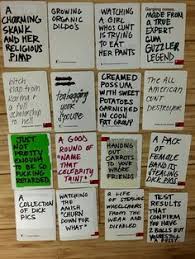 A
CHARMING
SKANK
AND HER
RELIGIOUS
PIMP
GROWING
ORGANIC
DILDO'S
WATCHING
A GIRL
WHO CLINT
IS TRYING
TO EAT
HER PANTS
MADE FROM
A TRUE
EXPERT
CUM
GUZZLER
LEGEND
bitch
slap from
karma
a full
scholarship
to hell
your
CREAMED
POSSUM
WITH SWEET
POTATOES
GARNISHED
IN COON
FAT GRAVY
The All
American
cunt
Destroyer
JUST
NOT
PRETTY
ENOUGH
TO BE SO
FUCKING
RETARDED
A GOOD
ROUND OF
"NAME
THAT
CELEBRITY
TAINT"
HANDING
OUT
CARROTS TO
YOUR
FRIENDS
A PACK
OF
FEMALE
BANDITS
STEALING
DICK
A
COLLECTION
OF
DICK PICS
WATCHING
THE
AMISH
"CHURN
DOWN FOR
WHAT"
A LIFE OF
STEALING
WHEELCHAIRS
FROM THE
WEAK AND
DISABLED
TEST
RESULTS
THAT
CONFIRM
2 BALLS